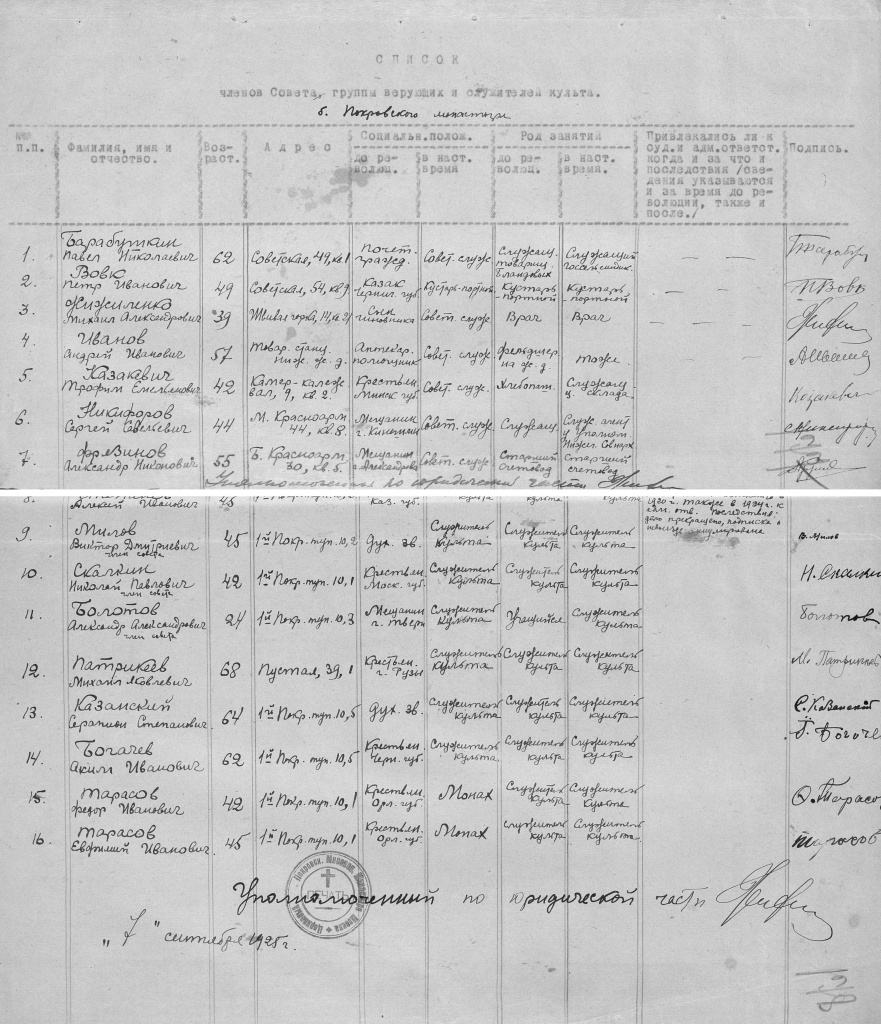 СПИСОК
членов Совета, группы верующих и служителей культа.
б. Покровского монастыря
№№ п.п.
Фамилия, имя и отчество.
Воз-раст.
Адрес
Социальн.полож.
до ре-волюц.
в наст. время
Род занятий
до ре-волюц.
в наст. время.
Привлекались ли к
суд.и адм.ответст.
когда и за что и
последствия /све-
дения указываются
и за время до ре-
волюции, также и
после./
Подпись.
1. Барабушкин
Павел Николаевич 62 Советская, 49, кв.1 Почет. гражд. Совет. служ. Служащ. товарищ. Служащий
2. Вовк
Петр Иванович 49 Советская, 54, кв.9 Казак Черниг. губ. Кустарь-портной Кустарь-портной Кустарь-портной П Вовк
3. Жижиленко
Михаил Александрович 39 Сын чиновника Совет. служ Врач Врач
4. Иванов
Андрей Иванович 57 Товар. станц. ж. д. Аптекар. помощник Совет. служ. Фельдшер на ж. д. тоже.
5. Казакевич
Трофим Емельянович 42 Камер-Колеж. вал, 9, кв. 2. Крестьян. Минск. губ. Совет. служ. Хлебопаш. Служащ. склада
6. Никифоров
Сергей Савельевич 44 М. Красноарм. 44, кв. 8. Мещанин г. Кинешмы Совет. служ. Служащ. Служ. агент
7. Фрязинов
Александр Никонович 55 Б. Красноарм. 30, кв. 5. Мещанин г. Александрова Совет. служ Старший счетовод Старший счетовод
Уполномоченный по юридической части
8.
Алексей Иванович 45 Каз. губ. культа культа культа
1920 г. также в 1924 г. к
дело прекращено, подписка о
9. Милов
Виктор Дмитриевич 45 1й Покр. туп. 10, 2 Дух. зв. Служитель культа Служитель культа Служитель культа В. Милов
член совета
10. Скалкин
Николай Павлович 42 1й Покр. туп. 10, 1 Крестьян. Моск. губ. Служитель культа Служитель культа Служитель культа Н. Скалкин
член совета
11. Болотов
Александр Александрович 24 1й Покр. туп. 10, 3 Мещанин г. Твери Служитель культа Учащийся Служитель культа Болотов
член совета
12. Патрикеев
Михаил Яковлевич 68 Пустая, 39, 1 Крестьян. г. Рузы Служитель культа Служитель культа Служитель культа М. Патрикеев
13. Казанский
Серапион Степанович 64 1й Покр. туп. 10, 5 Дух. зв. Служитель культа Служитель культа Служитель культа С. Казанский
14. Богачев
Аким Иванович 62 1й Покр. туп. 10, 5 Крестьян. Черн. губ. Служитель культа Служитель культа Служитель культа Богачев
15. Тарасов
Федор Иванович 42 1й Покр. туп. 10, 1 Крестьян. Орл. губ. Монах Служитель культа Служитель культа Ф. Тарасов
16. Тарасов
Евфимий Иванович 45 1й Покр. туп. 10, 1 Крестьян. Орл. губ. Монах Служитель культа Служитель культа Тарасов
Уполномоченный по юридической части
ПЕЧАТЬ
„7" сентября 1925 г.